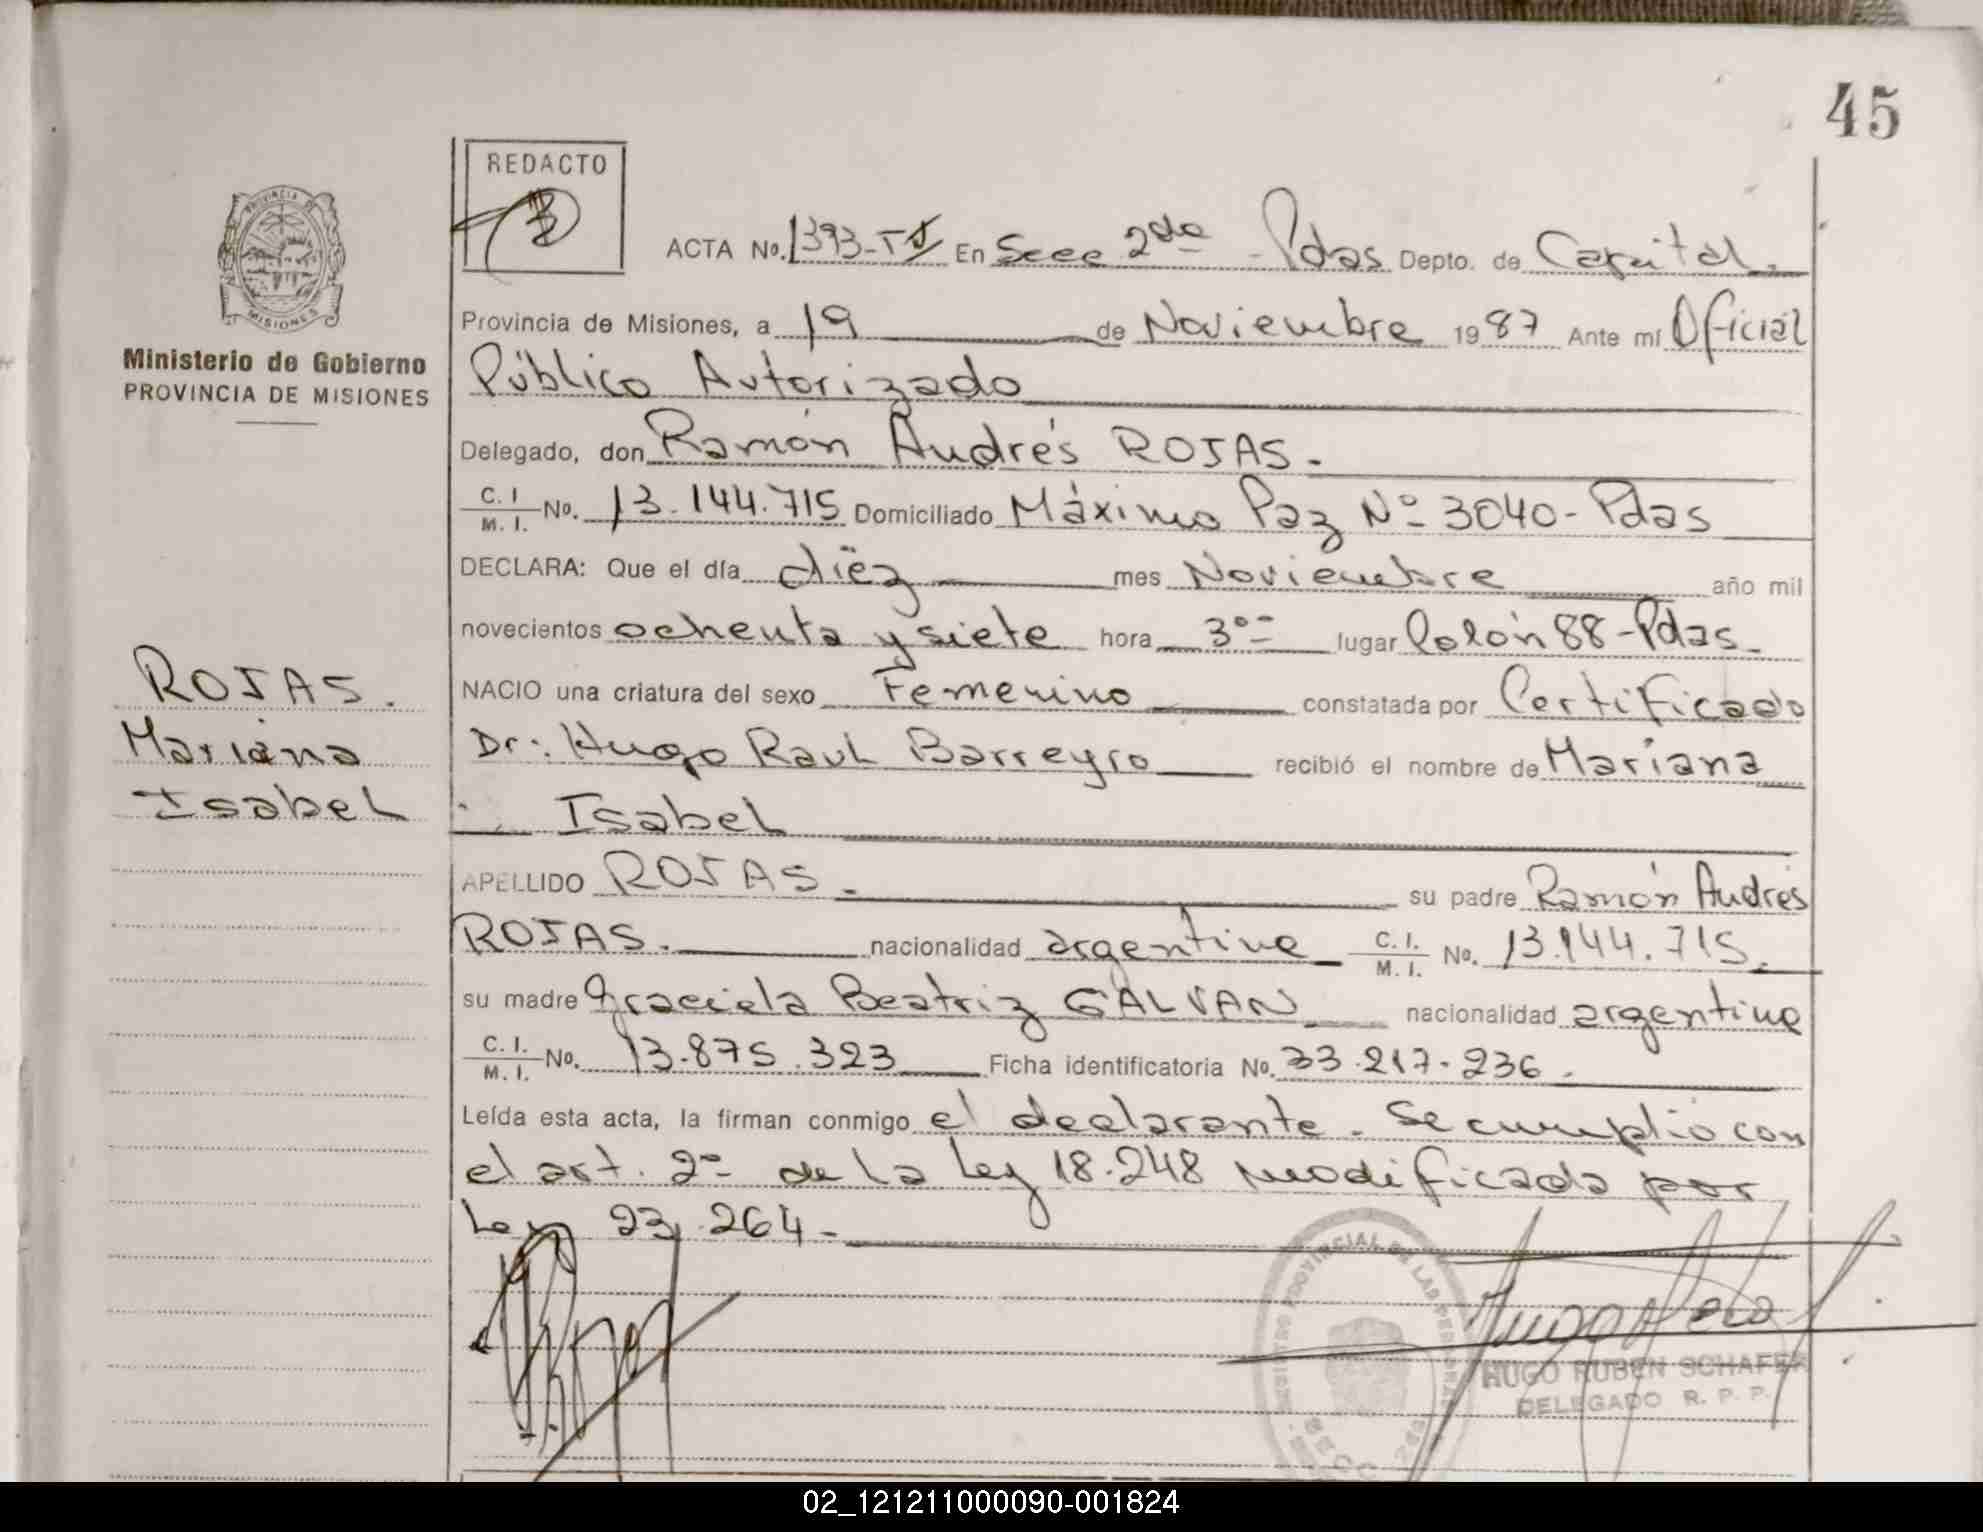 45
REDACTO
PROVINCIA DE
MISIONES
Ministerio de Gobierno
PROVINCIA DE MISIONES
ACTA No. 1393-T En Secc 2da - Pdas Depto. de Capital.
Provincia de Misiones, a 19 de Noviembre 1987 Ante mí Oficial
Público Autorizado
Delegado, don Ramón Andrés ROJAS.
C. I / M. I. No. 13.144.715 Domiciliado Máximo Paz Nº 3040 - Pdas
DECLARA: Que el día diez mes Noviembre año mil
novecientos ochenta y siete hora 3°° lugar Colón 88 - Pdas.
NACIO una criatura del sexo Femenino constatada por Certificado
Dr: Hugo Raul Barreyro recibió el nombre de Mariana
Isabel
ROJAS.
Mariana
Isabel
APELLIDO ROJAS. su padre Ramón Andrés
ROJAS. nacionalidad argentina C. I. / M. I. No. 13.144.715.
su madre Graciela Beatriz GALVAN nacionalidad argentina
C. I. / M. I. No. 13.875.323 Ficha identificatoria No. 33.217.236.
Leída esta acta, la firman conmigo el declarante. Se cumplió con
el art. 2º de la Ley 18.248 modificada por
Ley 23.264-
REGISTRO PROVINCIAL DE LAS PERSONAS
HUGO RUBEN SCHAFER
DELEGADO R. P. P.
02_121211000090-001824